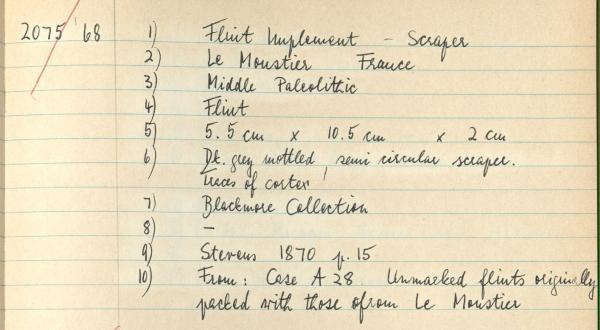 2075/68 1) Flint Implement - Scraper
2) Le Moustier France
3) Middle Paleolithic
4) Flint
5) 5.5 cm x 10.5 cm x 2 cm
6) Dk. grey mottled, semi circular scraper.
Traces of cortex
7) Blackmore Collection
8) -
9) Stevens 1870 p.15
10) From: Case A 28. Unmarked flints originally
packed with those ofrom Le Moustier